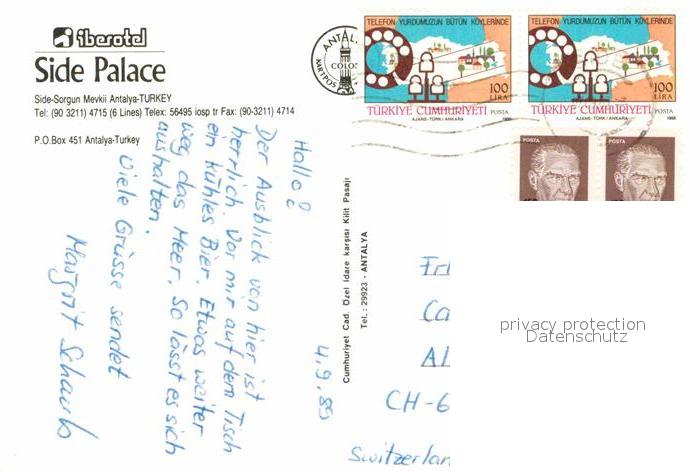 iberotel
Side Palace
Side-Sorgun Mevkii Antalya-TURKEY
Tel: (90 3211) 4715 (6 Lines) Telex: 56495 iosp tr Fax: (90-3211) 4714
P.O.Box 451 Antalya-Turkey
Hallo!
Der Ausblick von hier ist
herrlich. Vor mir auf dem Tisch
ein kühles Bier. Etwas weiter
weg das Meer. So lässt es sich
aushalten.
Viele Grüsse sendet
Margrit Schaub
4.9.89
Cumhuriyet Cad. Özel idare karşısı Kilit Pasajı
Tel.: 29923 - ANTALYA
ANTALYA
COLOR
KARTPOSTAL
TELEFON YURDUMUZUN BÜTÜN KÖYLERİNDE
100
LIRA
TÜRKİYE CUMHURİYETİ POSTA
AJANS-TÜRK/ANKARA 1988
TELEFON YURDUMUZUN BÜTÜN KÖYLERİNDE
100
LIRA
TÜRKİYE CUMHURİYETİ POSTA
AJANS-TÜRK/ANKARA 1988
POSTA
POSTA
CH-6
Switzerlan
privacy protection
Datenschutz